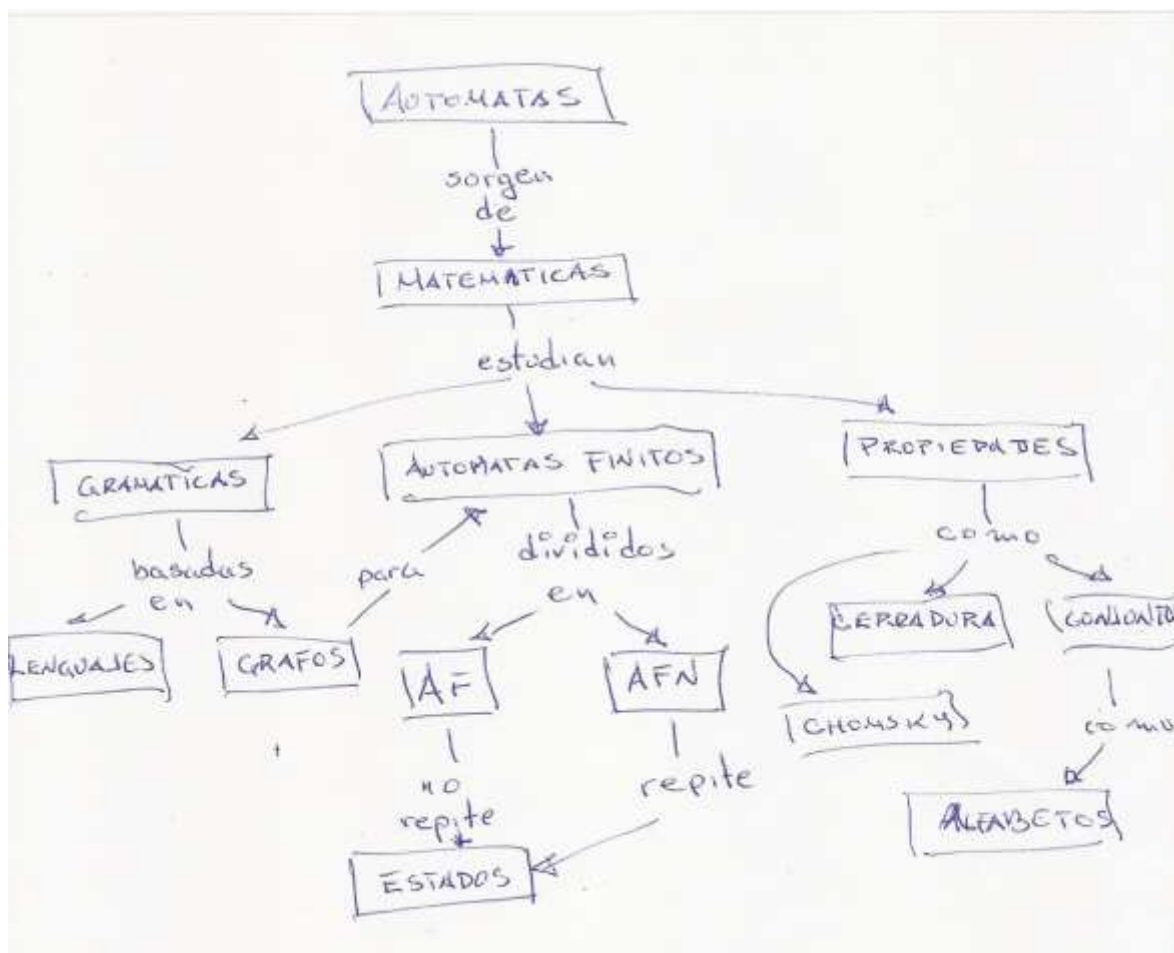 AUTOMATAS
sorgen
de
MATEMATICAS
estudian
GRAMATICAS
AUTOMATAS FINITOS
PROPIEDADES
basadas
en
para
divididos
en
como
LENGUAJES
GRAFOS
AF
AFN
CERRADURA
CONJONTO
CHOMSKY
como
no
repite
repite
ALFABETOS
ESTADOS